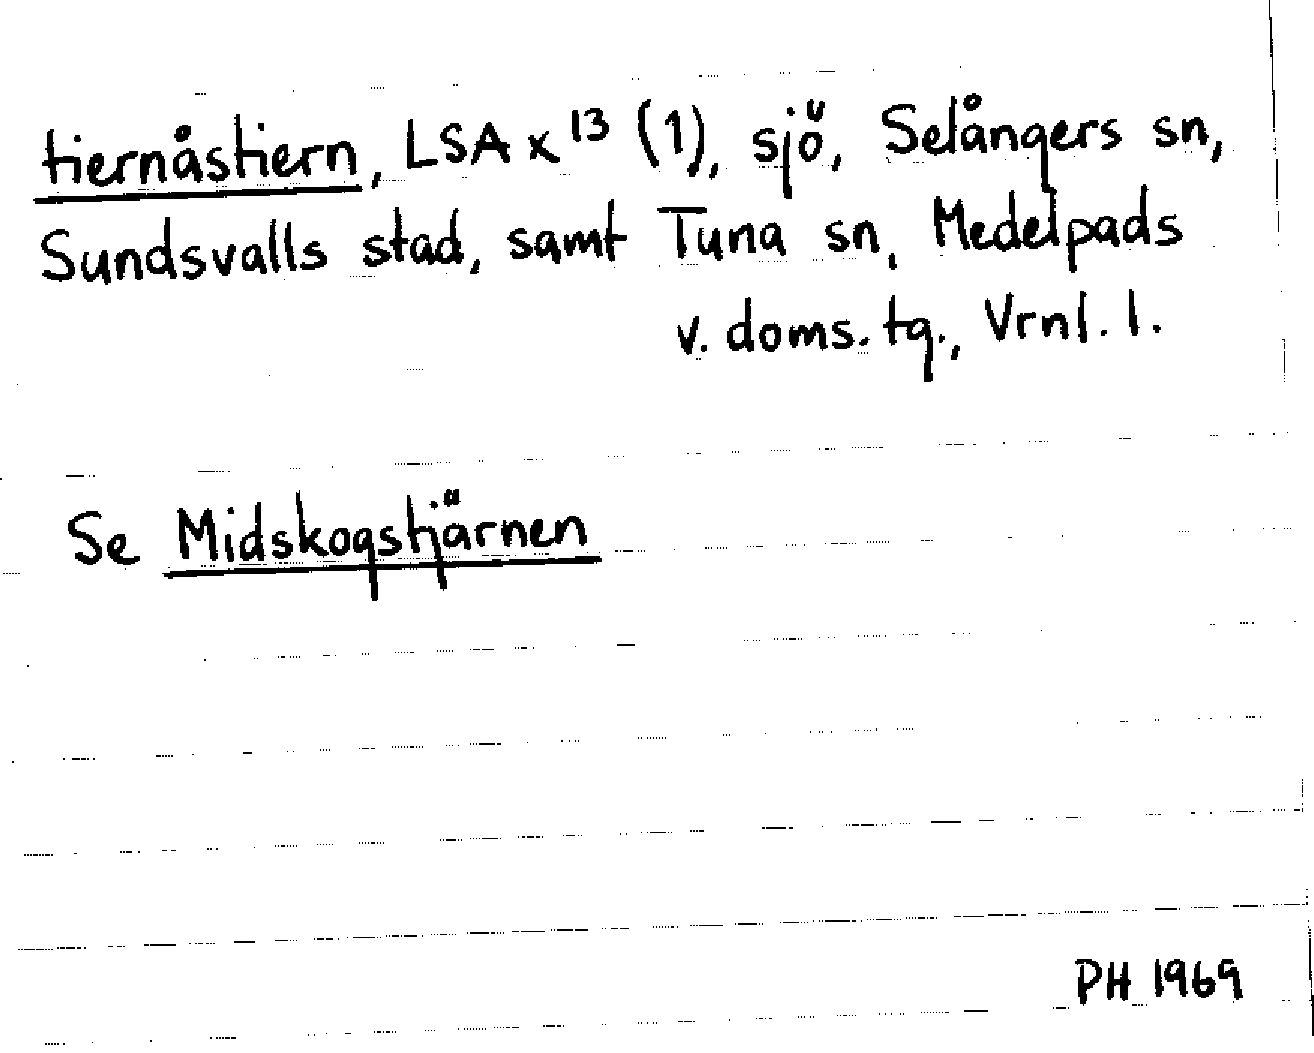 tiernåstiern, LSA x¹³ (1), sjö, Selångers sn,
Sundsvalls stad, samt Tuna sn, Medelpads
v. doms. tg., Vrnl. l.
Se Midskogstjärnen
PH 1969